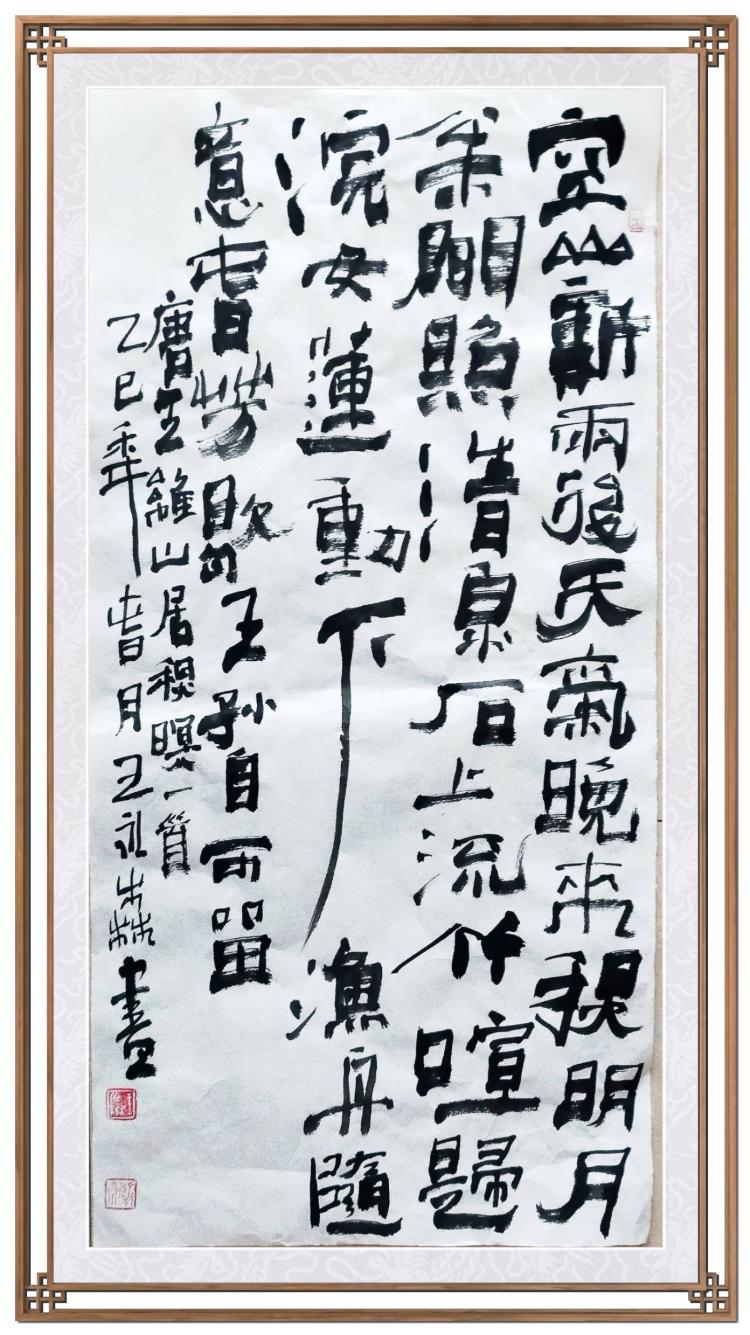 空山新雨後天氣晚來秋明月
松間照清泉石上流竹喧歸
浣女蓮動下漁舟隨
意春芳歇王孫自可留
唐王維山居秋暝一首
乙巳年春月王礼森書